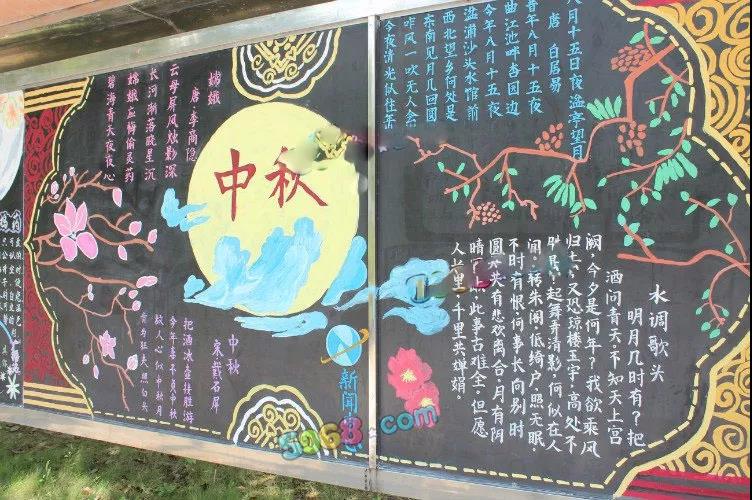 八月十五日夜湓亭望月
唐 白居易
昔年八月十五夜
曲江池畔杏园边
今年八月十五夜
湓浦沙头水馆前
西北望乡何处是
东南见月几回圆
昨风一吹无人会
今夜清光似往年
水调歌头
明月几时有？把
酒问青天不知天上宫
阙，今夕是何年？我欲乘风
归去，又恐琼楼玉宇，高处不
起舞弄清影，何似在人
间。转朱阁，低绮户，照无眠。
不时有恨，何事长向别时
圆 共有悲欢离合，月有阴
晴 此事古难全。但愿
人 里，千里共婵娟。
中秋
嫦娥
唐 李商隐
云母屏风烛影深
长河渐落晓星沉
嫦娥应悔偷灵药
碧海青天夜夜心
中秋
宋 戴石屏
把酒冰壶接胜游
今年喜不负中秋
故人心似中秋月
肯为狂夫照白头
新闻
5068.com